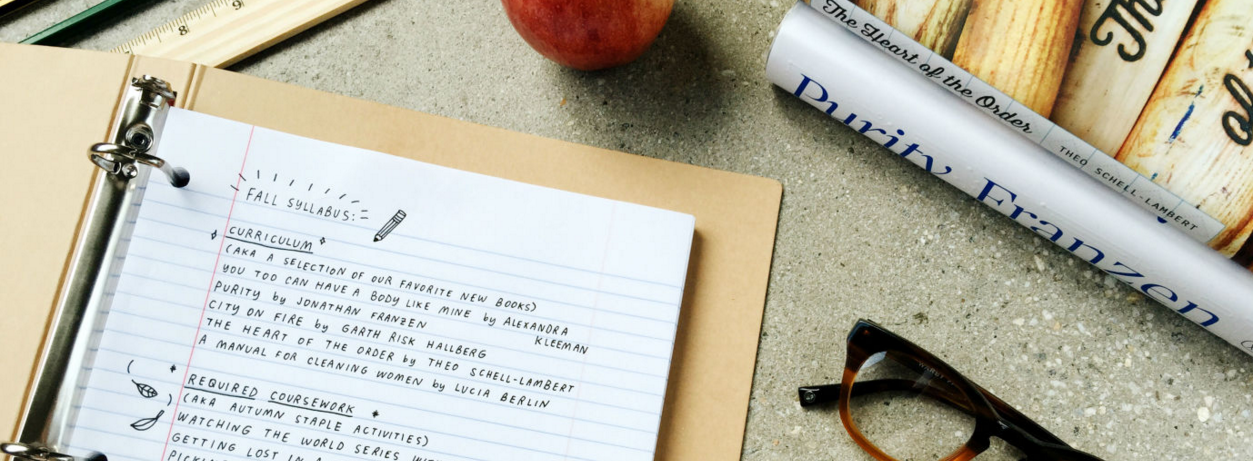 FALL SYLLABUS:
CURRICULUM
(AKA A SELECTION OF OUR FAVORITE NEW BOOKS)
YOU TOO CAN HAVE A BODY LIKE MINE by ALEXANDRA
KLEEMAN
PURITY by JONATHAN FRANZEN
CITY ON FIRE by GARTH RISK HALLBERG
THE HEART OF THE ORDER by THEO SCHELL-LAMBERT
A MANUAL FOR CLEANING WOMEN by LUCIA BERLIN
REQUIRED COURSEWORK
(AKA AUTUMN STAPLE ACTIVITIES)
WATCHING THE WORLD SERIES
GETTING LOST IN
The Heart of the Order
THEO SCHELL-LAMBERT
Purity Franzen
of
8
9